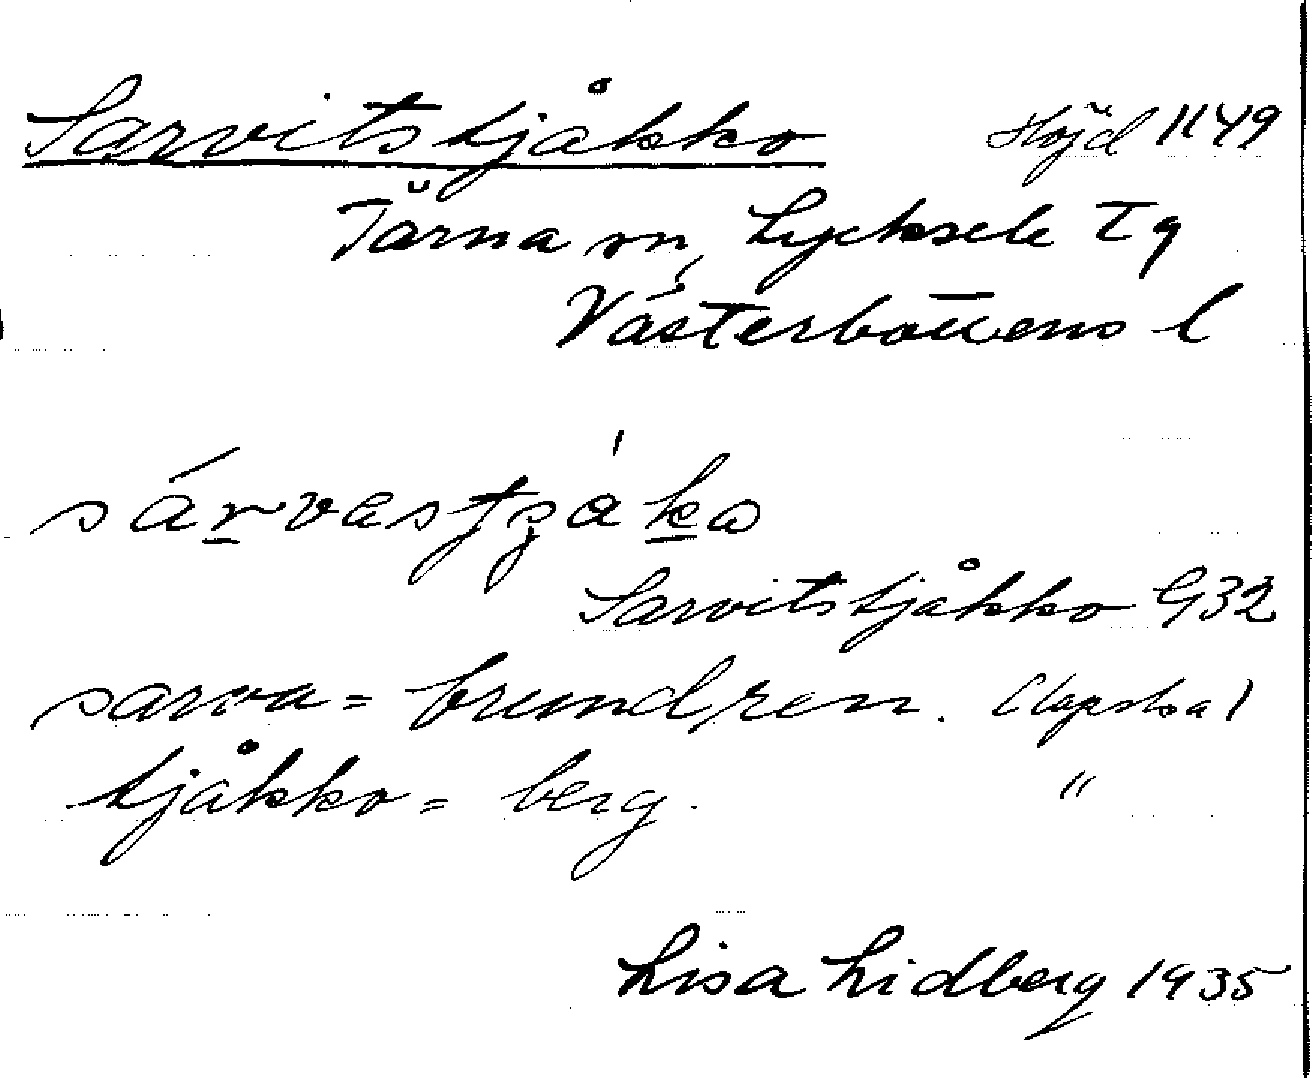 Sarvitstjåkko Höjd 1149
Tärna sn, Lycksele Tg
Västerbottens l
sárvastʒåka
Sarvitstjåkko G32
sarva = brundren. (lapska)
tjåkko = berg. "
Lisa Lidberg 1935